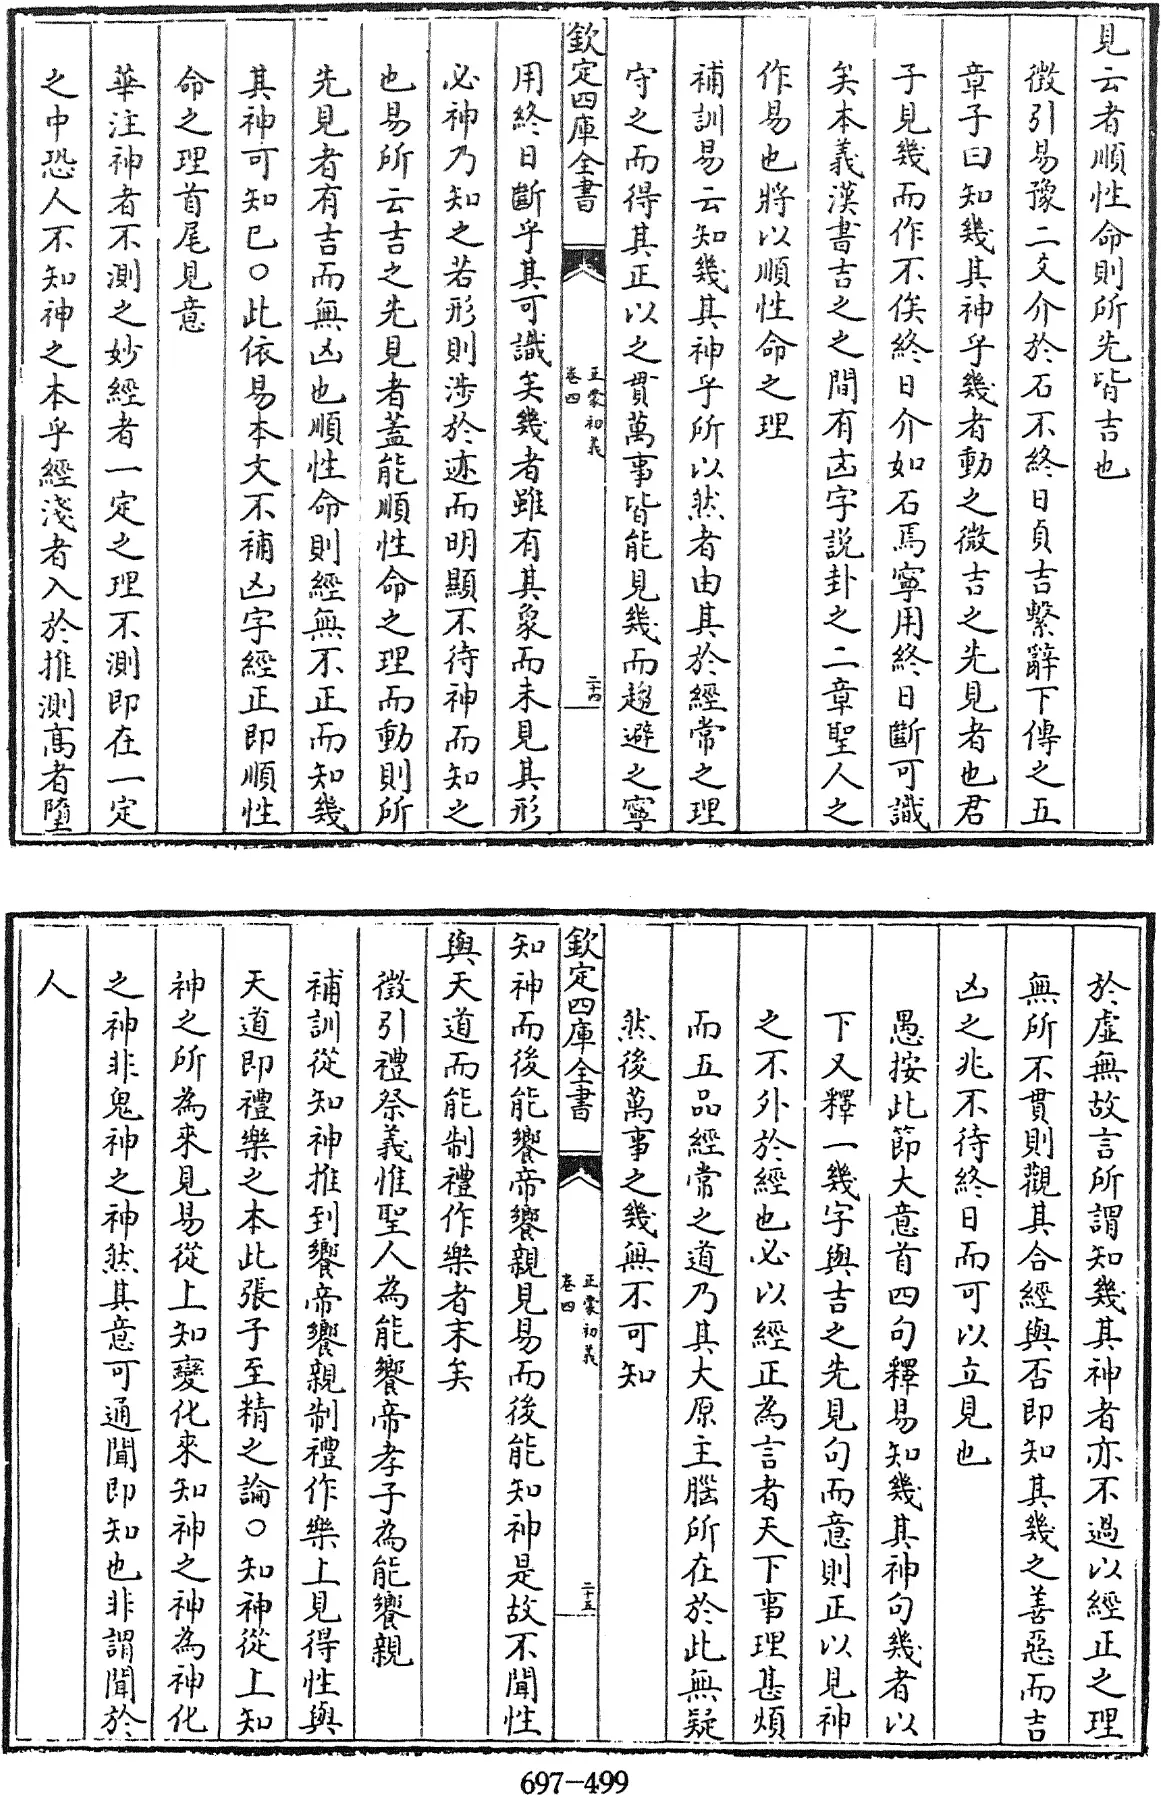 見云者順性命則所先皆吉也
徴引易豫二爻介於石不終日貞吉繫辭下傳之五
章子曰知幾其神乎幾者動之微吉之先見者也君
子見幾而作不俟終日介如石焉寧用終日斷可識
矣本義漢書吉之之間有凶字説卦之二章聖人之
作易也將以順性命之理
補訓易云知幾其神乎所以然者由其於經常之理
守之而得其正以之貫萬事皆能見幾而趨避之寧
欽定四庫全書
正蒙初義
卷四
二十四
用終日斷乎其可識矣幾者雖有其象而未見其形
必神乃知之若形則涉於迹而明顯不待神而知之
也易所云吉之先見者蓋能順性命之理而動則所
先見者有吉而無凶也順性命則經無不正而知幾
其神可知已○此依易本文不補凶字經正即順性
命之理首尾見意
華注神者不測之妙經者一定之理不測即在一定
之中恐人不知神之本乎經淺者入於推測髙者墮
於虚無故言所謂知幾其神者亦不過以經正之理
無所不貫則觀其合經與否即知其幾之善惡而吉
凶之兆不待終日而可以立見也
愚按此節大意首四句釋易知幾其神句幾者以
下又釋一幾字與吉之先見句而意則正以見神
之不外於經也必以經正為言者天下事理甚煩
而五品經常之道乃其大原主腦所在於此無疑
然後萬事之幾無不可知
欽定四庫全書
正蒙初義
卷四
二十五
知神而後能饗帝饗親見易而後能知神是故不聞性
與天道而能制禮作樂者末矣
徴引禮祭義惟聖人為能饗帝孝子為能饗親
補訓從知神推到饗帝饗親制禮作樂上見得性與
天道即禮樂之本此張子至精之論○知神從上知
神之所為來見易從上知變化來知神之神為神化
之神非鬼神之神然其意可通聞即知也非謂聞於
人
697-499